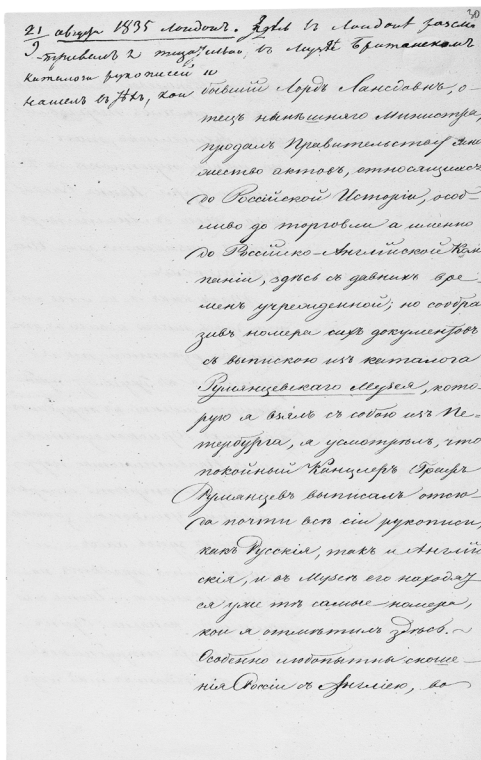 30
21 августа 1835 Лондонъ. Здѣсь въ Лондонѣ разсмо
тривалъ я тщательно, въ Музеѣ Британскомъ
Каталоги рукописей и
нашелъ въ тѣхъ, кои
бывшій Лордъ Лансдовнъ, о-
тецъ нынѣшняго Министра,
продалъ Правительству мно
жество актовъ, относящихся
до Россійской Исторіи, осо-
ливо до торговли а именно
до Россійско-Англійской Ком
паніи, здѣсь съ давнихъ вре
менъ учрежденной; но сообра
зивъ номера сихъ документовъ
съ выпискою изъ каталога
Румянцевскаго Музея, кото
рую я взялъ съ собою изъ Пе-
тербурга, я усмотрѣлъ, что
покойный Канцлеръ Графъ
Румянцевъ выписалъ отсю
да почти всѣ сіи рукописи,
какъ Русскія, такъ и Англій
скія, и въ Музеѣ его находят
ся уже тѣ самые номера,
кои я отмѣтилъ здѣсь.~
Особенно любопытны сноше-
нія Россіи съ Англіею, во